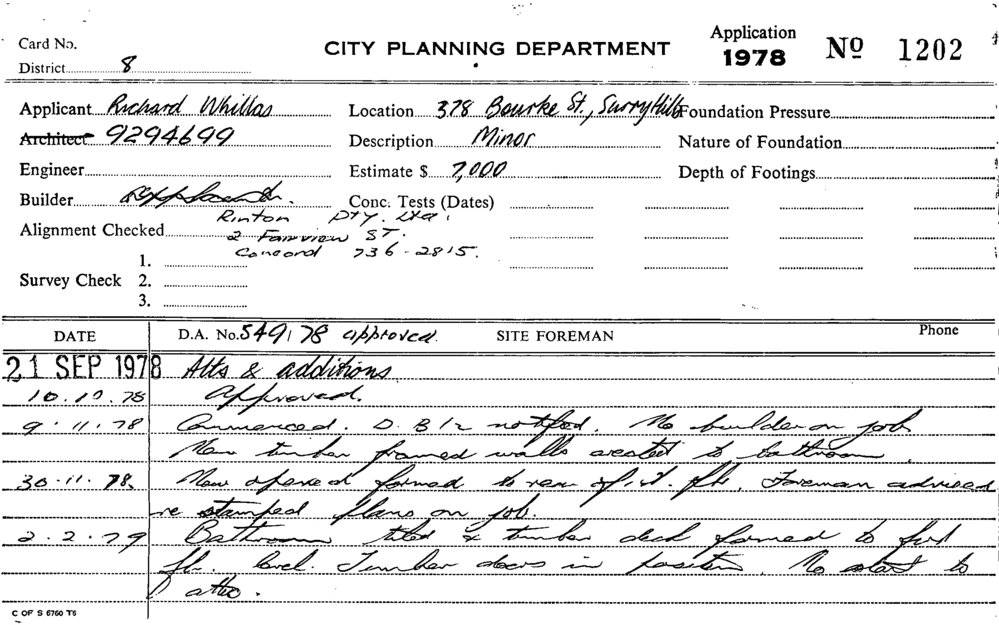 Card No.
CITY PLANNING DEPARTMENT
Application
1978
No 1202
District 8
Applicant Richard Whillas
Location 378 Bourke St., Surry Hills
Foundation Pressure
Architect 9294699
Description Minor
Nature of Foundation
Engineer
Estimate $ 7,000
Depth of Footings
Builder
Conc. Tests (Dates)
Rinton Pty. Ltd.
Alignment Checked 2 Fairview ST.
Concord 736-2815.
1.
Survey Check 2.
3.
DATE
D.A. No. 549/78 approved.
SITE FOREMAN
Phone
21 SEP 1978 Alts & additions
10.10.78 Approved.
9.11.78 Commenced. D.B12 notified. No builder on job.
New timber framed walls erected to bathroom.
30.11.78. New formed to rear of 1st flr. Foreman advised
re stamped plans on job.
2.2.79 Bathroom tiled & timber deck formed to first
flr. level. Timber doors in position. No start to
attic.
C OF S 6760 T6